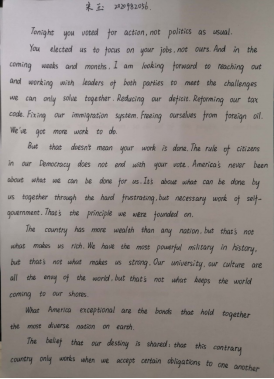 朱玉 2020982036.
Tonight you voted for action, not politics as usual.
You elected us to focus on your jobs, not ours. And in the
coming weeks and months, I am looking forward to reaching out
and working with leaders of both parties to meet the challenges
we can only solve together. Reducing our deficit. Reforming our tax
code. Fixing our immigration system. Freeing ourselves from foreign oil.
We've got more work to do.
But that doesn't mean your work is done. The role of citizens
in our Democracy does not end with your vote. America's never been
about what we can be done for us. It's about what can be done by
us together through the hard frustrating, but necessary work of self-
government. That's the principle we were founded on.
The country has more wealth than any nation, but that's not
what makes us rich. We have the most powerful military in history,
but that's not what makes us strong. Our university, our culture are
all the envy of the world, but that's not what keeps the world
coming to our shores.
What America exceptional are the bonds that hold together
the most diverse nation on earth.
The belief that our destiny is shared; that this contrary
country only works when we accept certain obligations to one another